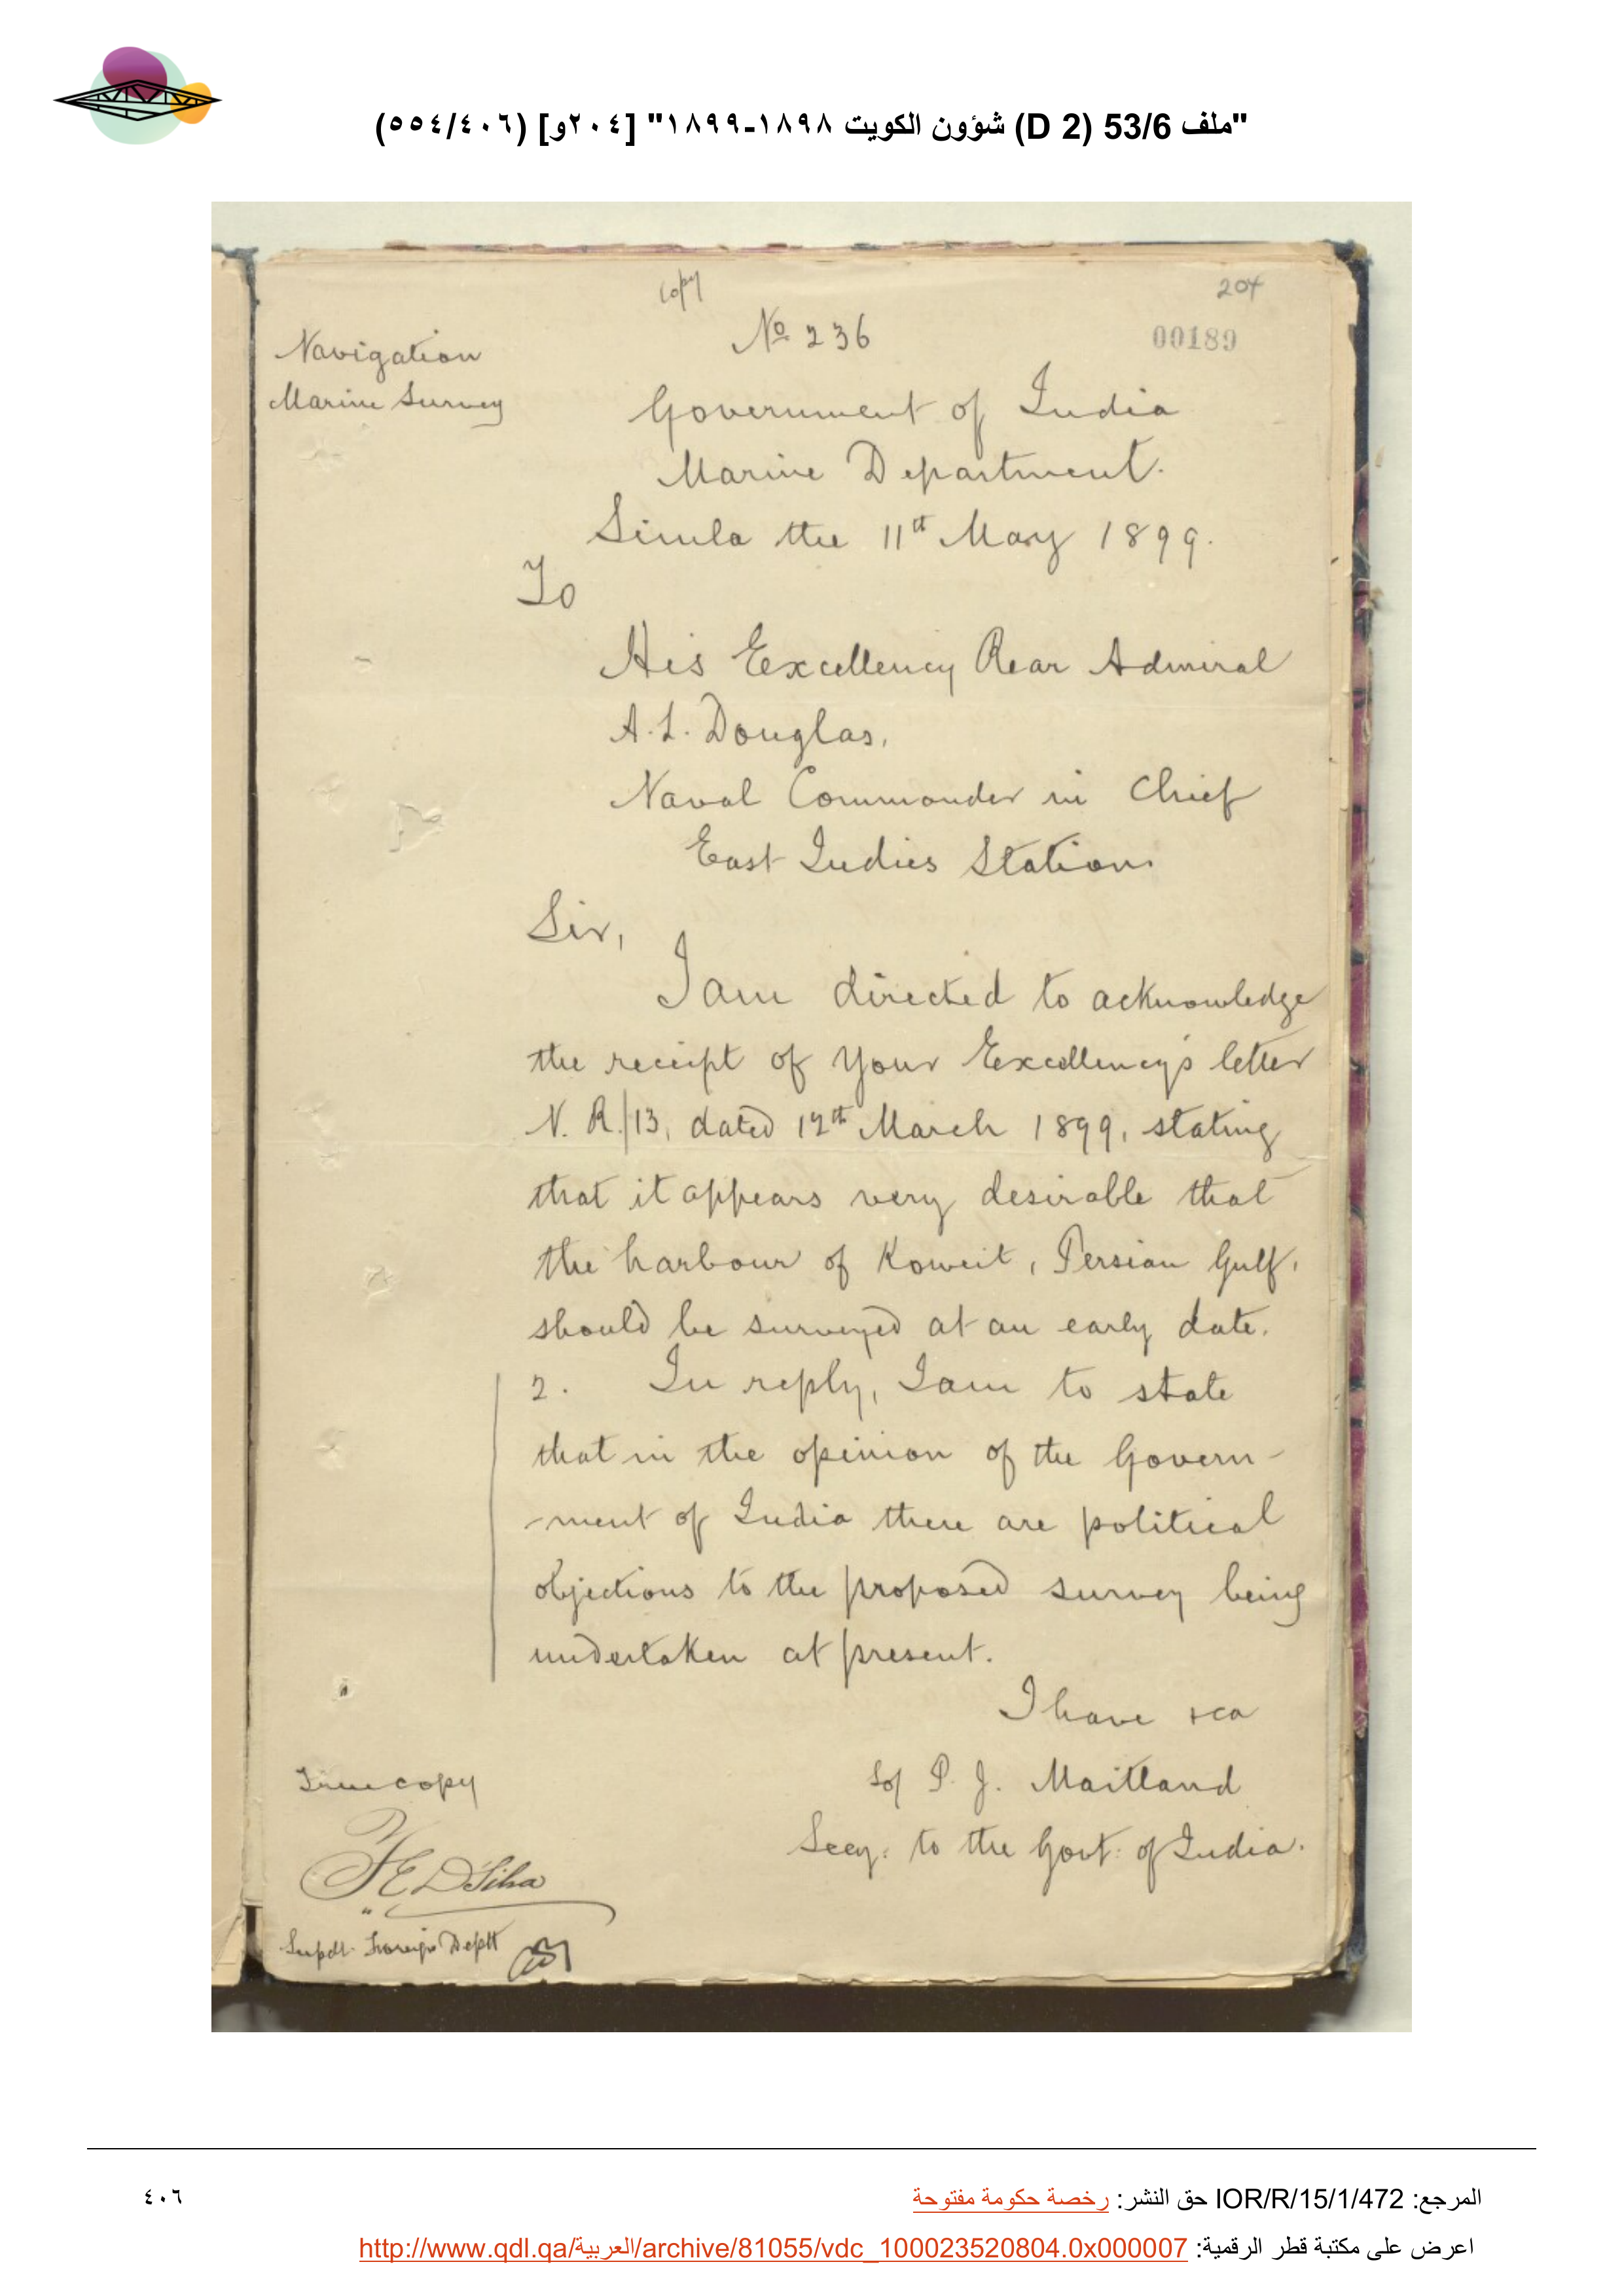 "ملف 53/6 (D 2) شؤون الكويت ١٨٩٨-١٨٩٩" [٢٠٤و] (٥٥٤/٤٠٦)
copy
204
Nº 236
00189
Navigation
Marine Survey
Government of India
Marine Department.
Simla the 11th May 1899.
To
His Excellency Rear Admiral
A. L. Douglas,
Naval Commander in Chief
East Indies Station.
Sir,
I am directed to acknowledge
the receipt of Your Excellency's letter
N. R./13, dated 12th March 1899, stating
that it appears very desirable that
the harbour of Koweit, Persian Gulf,
should be surveyed at an early date.
2. In reply, I am to state
that in the opinion of the Govern-
-ment of India there are political
objections to the proposed survey being
undertaken at present.
I have &ca
Sd/ P. J. Maitland
Secy: to the Govt: of India.
True copy
F E D'Silva
Supdt. Foreign Deptt
المرجع: IOR/R/15/1/472 حق النشر: رخصة حكومة مفتوحة
٤٠٦
اعرض على مكتبة قطر الرقمية: http://www.qdl.qa/العربية/archive/81055/vdc_100023520804.0x000007